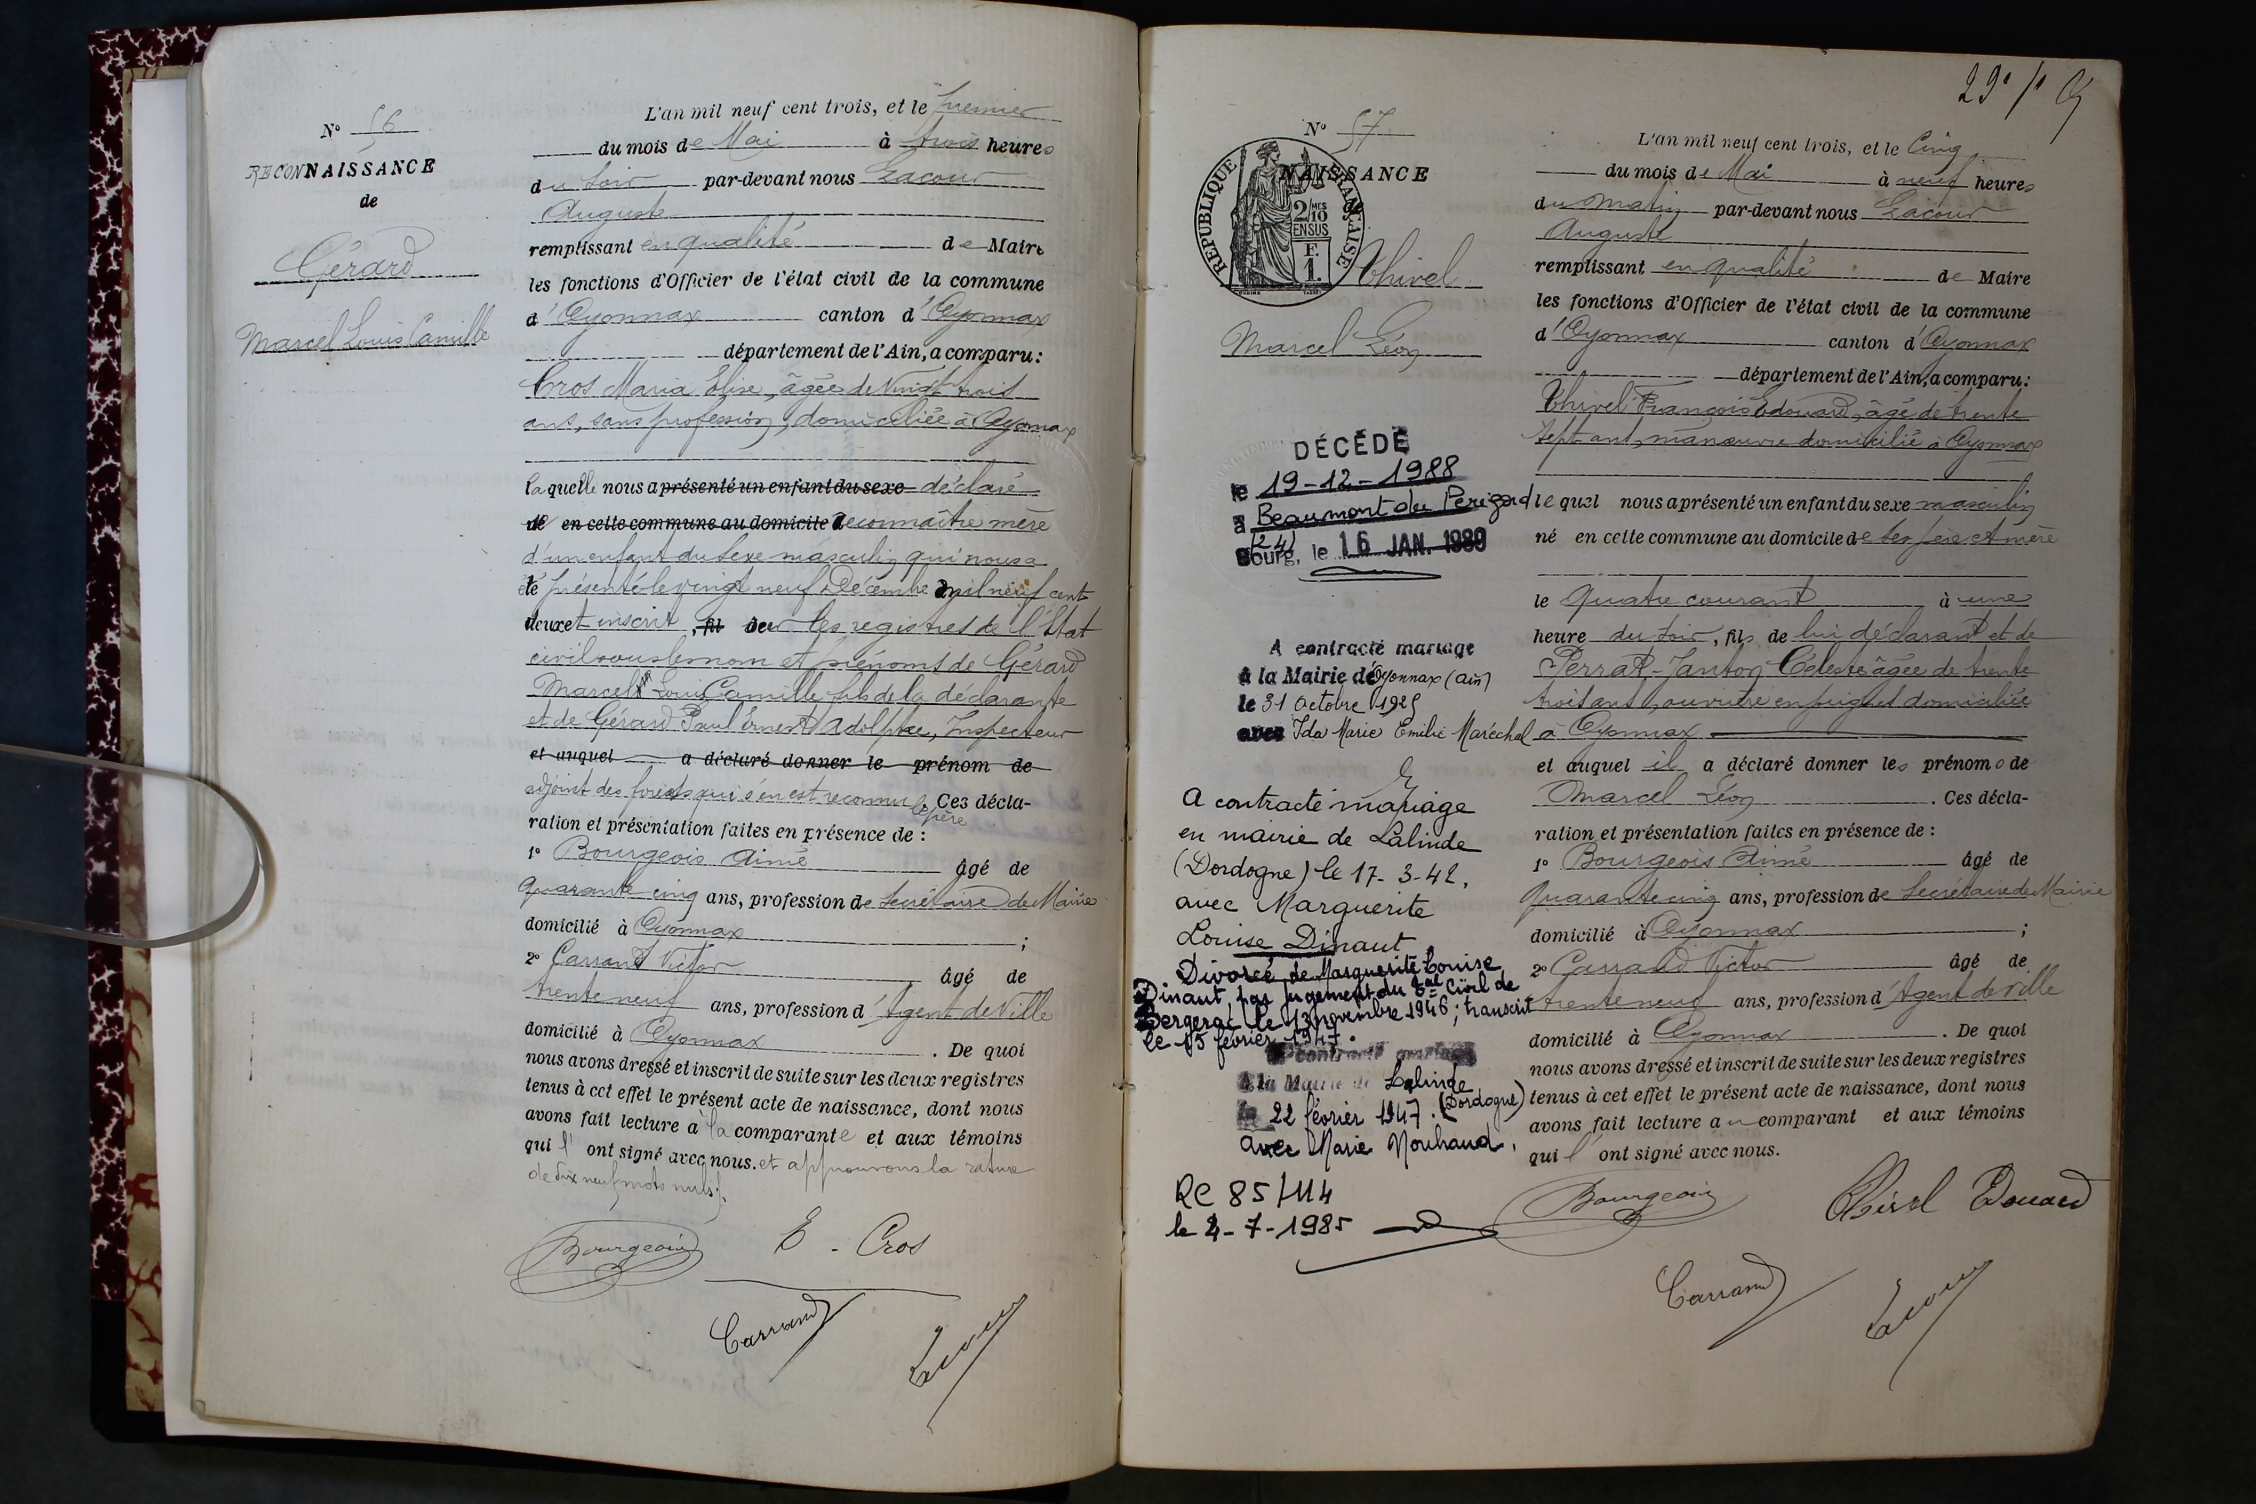 N° 56
RECONNAISSANCE
de
Gérard
Marcel Louis Camille
L'an mil neuf cent trois, et le premier
du mois de Mai à trois heures
du soir par-devant nous Lacour
Auguste
remplissant en qualité de Maire
les fonctions d'Officier de l'état civil de la commune
d'Oyonnax canton d'Oyonnax
département de l'Ain, a comparu:
Cros Maria Elise, âgée de Vingt trois
ans, sans profession, domiciliée à Oyonnax
laquelle nous a présenté un enfant du sexe déclaré
né en cette commune au domicile de reconnaître mère
d'un enfant du sexe masculin qui nous a
été présenté le vingt neuf Décembre mil neuf cent
deux et inscrit, fil sur les registres de l'Etat
civil sous les nom et prénoms de Gérard
Marcel Louis Camille fils de la déclarante
et de Gérard Paul Ernest Adolphe, Inspecteur
et auquel a déclaré donner le prénom de
adjoint des forêts qui s'en est reconnu le père. Ces décla-
ration et présentation faites en présence de :
1° Bourgeois Aimé âgé de
quarante cinq ans, profession de Secrétaire de Mairie
domicilié à Oyonnax ;
2° Carrand Victor âgé de
trente neuf ans, profession d'Agent de Ville
domicilié à Oyonnax. De quoi
nous avons dressé et inscrit de suite sur les deux registres
tenus à cet effet le présent acte de naissance, dont nous
avons fait lecture à la comparante et aux témoins
qui l'ont signé avec nous. et approuvons la rature
de dix neuf mots nuls.
Bourgeois E. Cros
Carrand Lacour
29
N° 57
NAISSANCE
de
REPUBLIQUE FRANÇAISE
2/10 MES
EN SUS
F.
1.
Thivel
Marcel Léon
DÉCÉDÉ
le 19-12-1988
à Beaumont du Périgord
(24)
Bourg, le 16 JAN. 1989
A contracté mariage
à la Mairie d'Oyonnax (Ain)
le 31 octobre 1925
avec Ida Marie Emilie Maréchal
A contracté mariage
en mairie de Lalinde
(Dordogne) le 17-3-42,
avec Marguerite
Louise Dinaut
Divorcé de Marguerite Louise
Dinaut, par jugement du Tal Civil de
Bergerac le 13 novembre 1946; transcrit
le 15 février 1947.
A contracté mariage
à la Mairie de Lalinde
(Dordogne)
le 22 février 1947.
avec Marie Nouhaud,
RC 85/114
le 4-7-1985
L'an mil neuf cent trois, et le Cinq
du mois de Mai à neuf heures
du matin par-devant nous Lacour
Auguste
remplissant en qualité de Maire
les fonctions d'Officier de l'état civil de la commune
d'Oyonnax canton d'Oyonnax
département de l'Ain, a comparu:
Thivel François Edouard, âgé de trente
sept ans, manœuvre domicilié à Oyonnax
lequel nous a présenté un enfant du sexe masculin
né en cette commune au domicile de ses père et mère
le quatre courant à une
heure du soir, fils de lui déclarant et de
Perrat-Janton Céleste âgée de trente
trois ans, ouvrière en peignes domiciliée
à Oyonnax
et auquel il a déclaré donner les prénoms de
Marcel Léon. Ces décla-
ration et présentation faites en présence de :
1° Bourgeois Aimé âgé de
quarante cinq ans, profession de Secrétaire de Mairie
domicilié à Oyonnax ;
2° Carrand Victor âgé de
trente neuf ans, profession d'Agent de Ville
domicilié à Oyonnax. De quoi
nous avons dressé et inscrit de suite sur les deux registres
tenus à cet effet le présent acte de naissance, dont nous
avons fait lecture au comparant et aux témoins
qui l'ont signé avec nous.
Bourgeois Thivel Edouard
Carrand Lacour